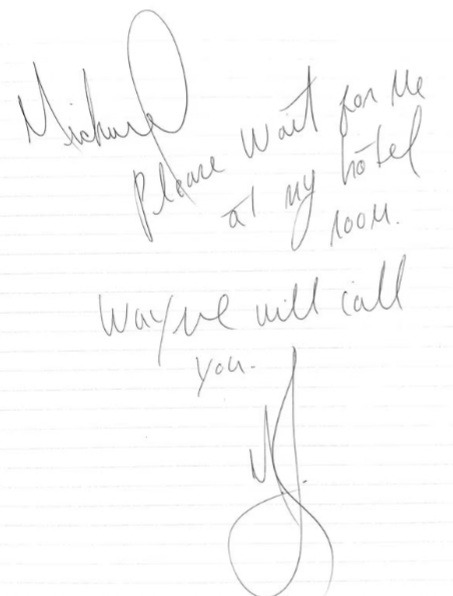 Michael
Please Wait for Me
at my hotel
room.
Wayne will call
you.
MJ.